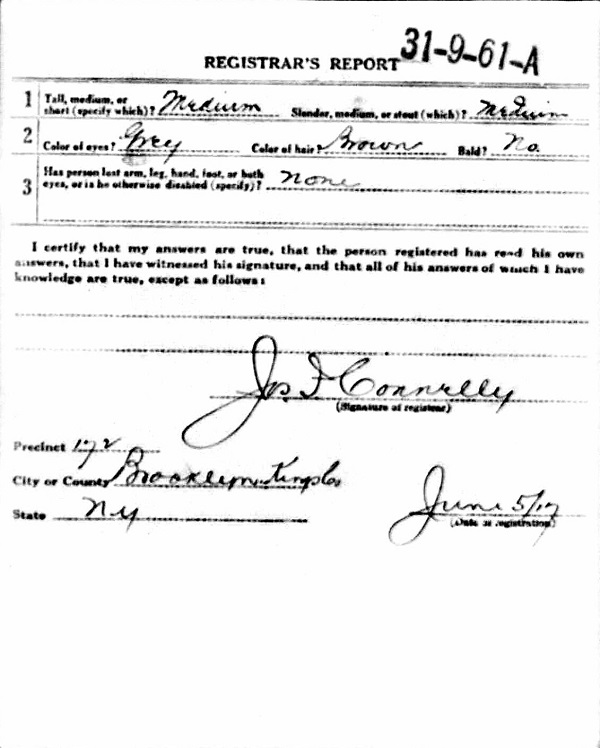 REGISTRAR'S REPORT 31-9-61-A
1 Tall, medium, or short (specify which)? Medium Slender, medium, or stout (which)? Medium
2 Color of eyes? Grey Color of hair? Brown Bald? No
3 Has person lost arm, leg, hand, foot, or both
eyes, or is he otherwise disabled (specify)? None
I certify that my answers are true, that the person registered has read his own
answers, that I have witnessed his signature, and that all of his answers of which I have
knowledge are true, except as follows:
Jos F Connelly
(Signature of registrar)
Precinct 172
City or County Brooklyn Kings Co
State NY June 5/17
(Date of registration)